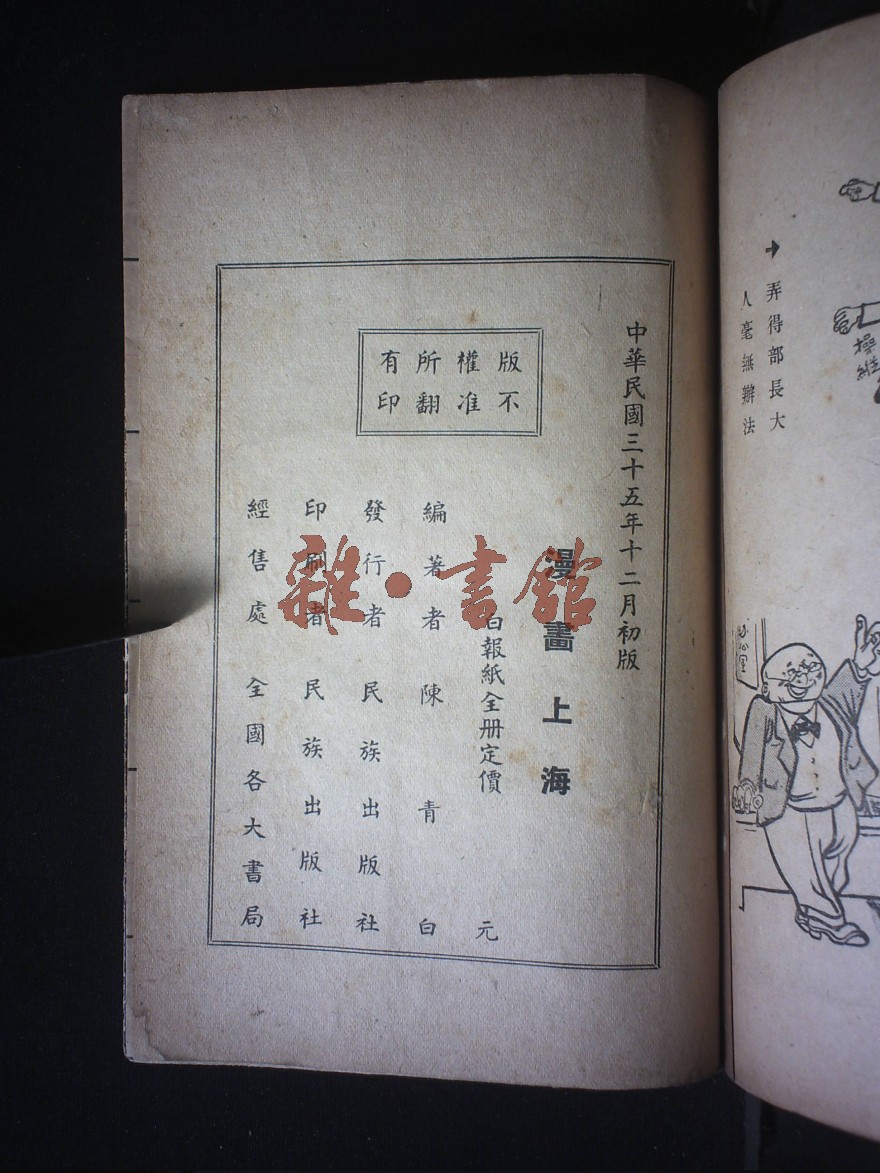 中華民國三十五年十二月初版
漫畫上海
白報紙全册定價　元
編著者　陳青白
發行者　民族出版社
印刷者　民族出版社
經售處　全國各大書局
版權所有
不准翻印
雜·書館
弄得部長大
人毫無辦法
操縱
辦公室